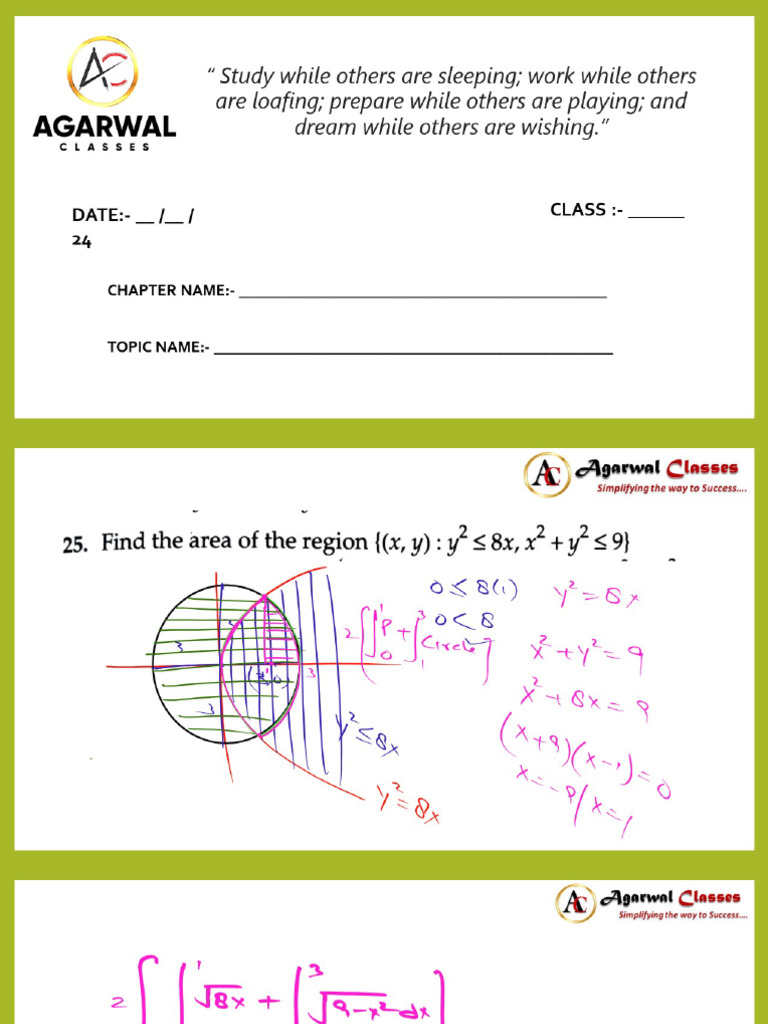 “ Study while others are sleeping; work while others
are loafing; prepare while others are playing; and
dream while others are wishing.”
AC
AGARWAL
CLASSES
DATE:- __ /__ /
24
CLASS :- ______
CHAPTER NAME:- ______________________________________
TOPIC NAME:- ______________________________________
AC Agarwal Classes
Simplifying the way to Success....
25. Find the area of the region {(x, y) : y² ≤ 8x, x² + y² ≤ 9}
0 ≤ 8(1)
0 < 8
y² = 8x
2[∫₀¹ P + ∫₁³ circle]
x² + y² = 9
x² + 8x = 9
(x+9)(x-1) = 0
x = -9 / x = 1
3
3
3
y² ≤ 8x
y² = 8x
AC Agarwal Classes
Simplifying the way to Success....
2[∫¹ √8x + ∫³ √9-x² dx]